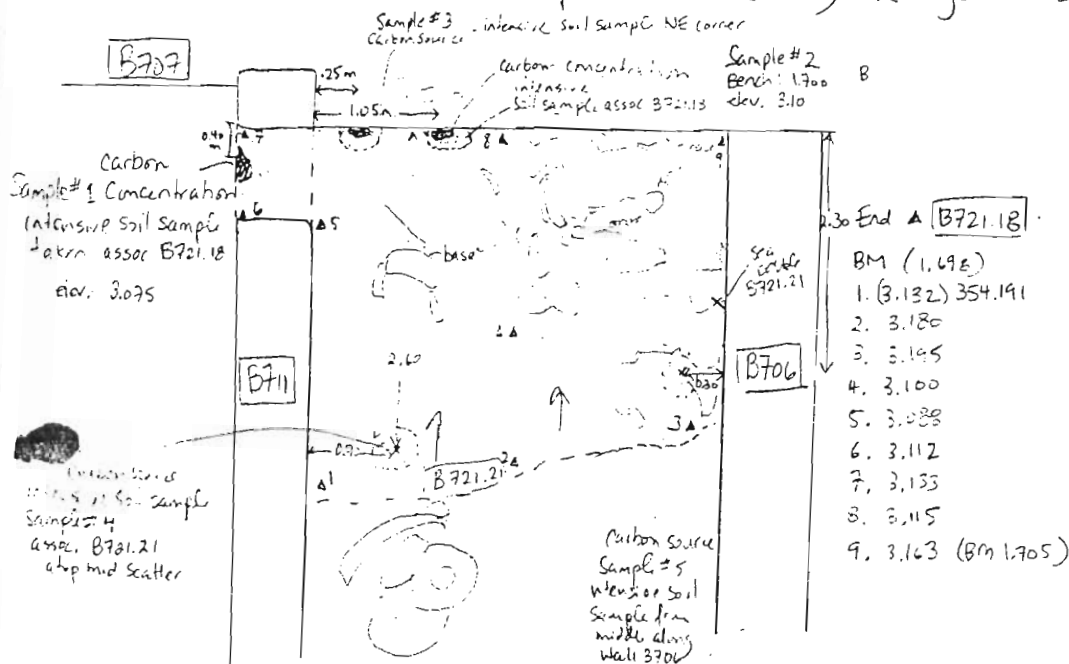 Sample #3 - intensive soil sample NE corner
Carbon Source
B707
.25m
carbon concentration
intensive
soil sample assoc B721.18
Sample #2
Bench: 1.700
elev. 3.10
B
1.05m
0.40
m
7
8
9
Carbon
Sample #1 Concentration
intensive soil sample
taken assoc B721.18
elev. 3.075
6
5
base
B721.21
2.30 End ▲ B721.18
BM (1.698)
1. (3.132) 354.191
2. 3.180
3. 3.195
4. 3.100
5. 3.088
6. 3.112
7. 3.133
8. 3.115
9. 3.163 (BM 1.705)
2.60
B711
B706
0.30
3
1
2
B721.21
soil sample
Sample #4
assoc. B721.21
atop mid scatter
Carbon source
Sample #5
intensive soil
Sample from
middle along
Wall B706